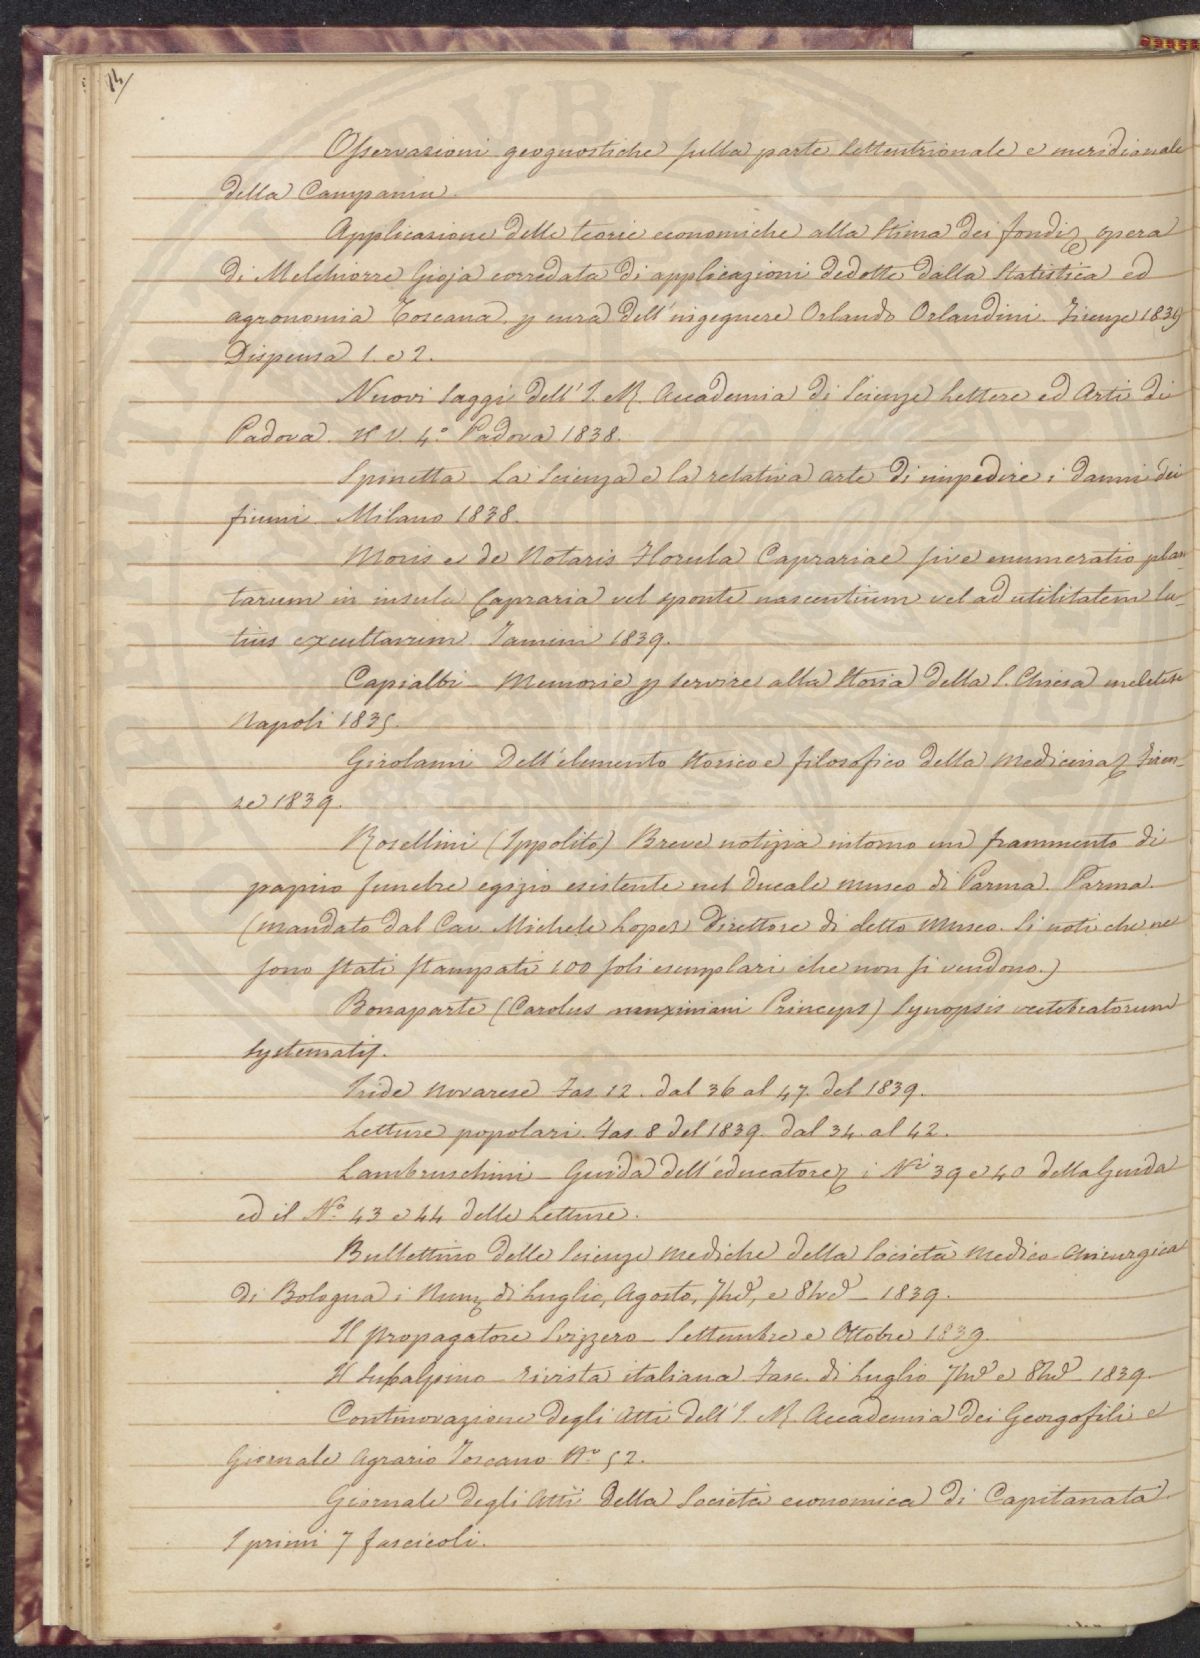 14/
Osservazioni geognostiche sulla parte settentrionale e meridionale
della Campania.
Applicazione delle teorie economiche alla stima dei fondi, opera
di Melchiorre Gioja corredata di applicazioni dedotte dalla Statistica ed
agronomia Toscana, p cura dell'ingegnere Orlando Orlandini. Firenze 1839
Dispensa 1. e 2.
Nuovi Saggi dell'I. R. Accademia di Scienze Lettere ed Arti di
Padova. Il V. 4.º Padova 1838.
Spinetta La Scienza e la relativa arte di impedire i danni dei
fiumi. Milano 1838.
Moris et de Notaris Florula Caprariae sive enumeratio plan-
tarum in insula Capraria vel sponte nascentium vel ad utilitatem la-
tius excultarum Taurini 1839.
Capialbi - Memorie p servire alla Storia della S. Chiesa miletese
Napoli 1835.
Girolami Dell'elemento storico e filosofico della medicina, Firen-
ze 1839.
Rosellini (Ippolito) Breve notizia intorno un frammento di
papiro funebre egizio esistente nel ducale museo di Parma. Parma.
(mandato dal Cav. Michele Lopez Direttore di detto Museo. Si noti che ne
sono stati stampati 100 soli esemplari che non si vendono.)
Bonaparte (Carolus manximiani Princeps) Synopsis vertebratorum
systematis.
Iride Novarese Fas. 12. dal 36 al 47. del 1839.
Letture popolari. Fas. 8 del 1839. dal 34. al 42.
Lambruschini - Guida dell'educatore, i Nri 39 e 40 della Guida
ed il N.º 43 e 44 delle Letture.
Bullettino delle Scienze mediche della Società Medico-Chirurgica
di Bologna i Num. di Luglio, Agosto, 7bre, e 8bre - 1839.
Il Propagatore Svizzero - Settembre e Ottobre 1839.
Il Subalpino - rivista italiana. Fasc. di Luglio 7bre e 8bre - 1839.
Continovazione degli Atti dell'I. R. Accademia dei Georgofili e
Giornale Agrario Toscano N.º 52.
Giornale degli Atti della Società economica di Capitanata.
I primi 7 fascicoli.